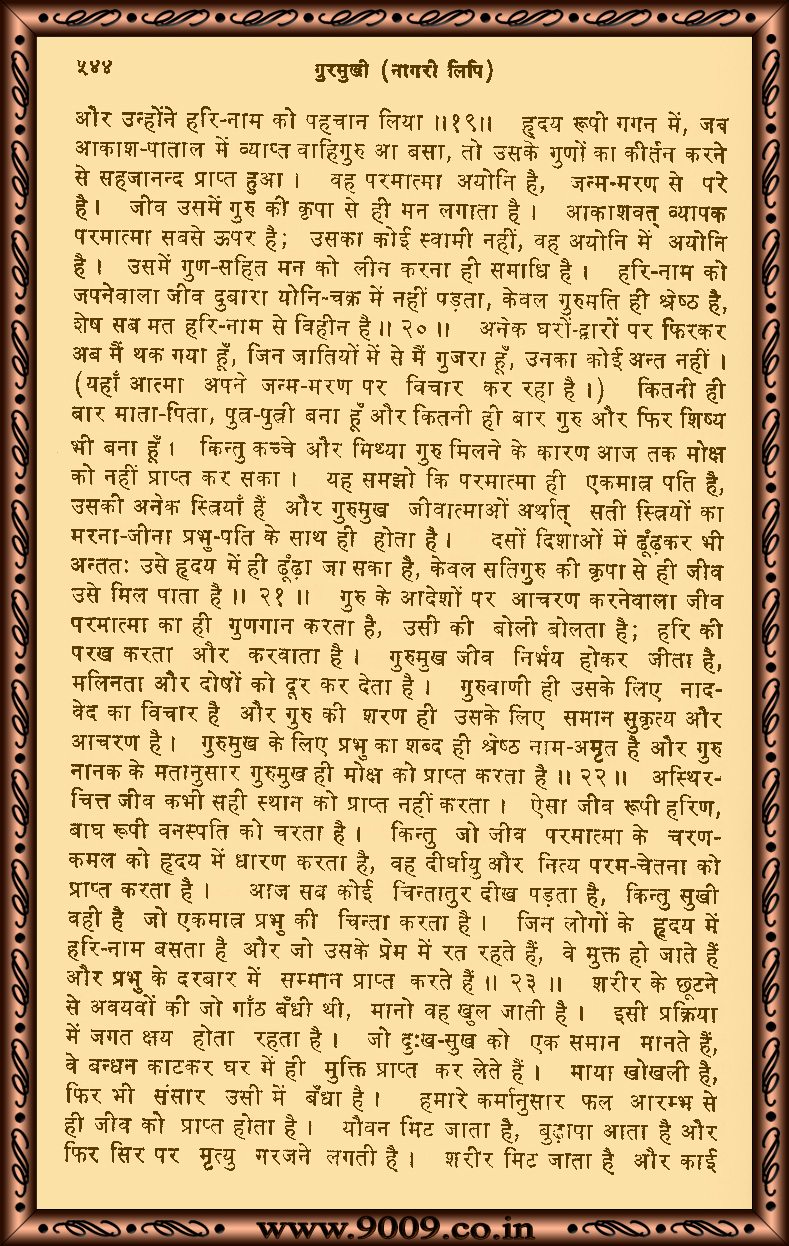 ५४४ गुरमुखी (नागरी लिपि)
और उन्होंने हरि-नाम को पहचान लिया ॥१९॥ हृदय रूपी गगन में, जब
आकाश-पाताल में व्याप्त वाहिगुरु आ बसा, तो उसके गुणों का कीर्तन करने
से सहजानन्द प्राप्त हुआ । वह परमात्मा अयोनि है, जन्म-मरण से परे
है । जीव उसमें गुरु की कृपा से ही मन लगाता है । आकाशवत् व्यापक
परमात्मा सबसे ऊपर है; उसका कोई स्वामी नहीं, वह अयोनि में अयोनि
है । उसमें गुण-सहित मन को लीन करना ही समाधि है । हरि-नाम को
जपनेवाला जीव दुबारा योनि-चक्र में नहीं पड़ता, केवल गुरुमति ही श्रेष्ठ है,
शेष सब मत हरि-नाम से विहीन है ॥ २० ॥ अनेक घरों-द्वारों पर फिरकर
अब मैं थक गया हूँ, जिन जातियों में से मैं गुजरा हूँ, उनका कोई अन्त नहीं ।
(यहाँ आत्मा अपने जन्म-मरण पर विचार कर रहा है ।) कितनी ही
बार माता-पिता, पुत्र-पुत्री बना हूँ और कितनी ही बार गुरु और फिर शिष्य
भी बना हूँ । किन्तु कच्चे और मिथ्या गुरु मिलने के कारण आज तक मोक्ष
को नहीं प्राप्त कर सका । यह समझो कि परमात्मा ही एकमात्र पति है,
उसकी अनेक स्त्रियाँ हैं और गुरुमुख जीवात्माओं अर्थात् सती स्त्रियों का
मरना-जीना प्रभु-पति के साथ ही होता है । दसों दिशाओं में ढूँढ़कर भी
अन्ततः उसे हृदय में ही ढूँढ़ा जा सका है, केवल सतिगुरु की कृपा से ही जीव
उसे मिल पाता है ॥ २१ ॥ गुरु के आदेशों पर आचरण करनेवाला जीव
परमात्मा का ही गुणगान करता है, उसी की बोली बोलता है; हरि की
परख करता और करवाता है । गुरुमुख जीव निर्भय होकर जीता है,
मलिनता और दोषों को दूर कर देता है । गुरुवाणी ही उसके लिए नाद-
वेद का विचार है और गुरु की शरण ही उसके लिए समान सुकृत्य और
आचरण है । गुरुमुख के लिए प्रभु का शब्द ही श्रेष्ठ नाम-अमृत है और गुरु
नानक के मतानुसार गुरुमुख ही मोक्ष को प्राप्त करता है ॥ २२ ॥ अस्थिर-
चित्त जीव कभी सही स्थान को प्राप्त नहीं करता । ऐसा जीव रूपी हरिण,
बाघ रूपी वनस्पति को चरता है । किन्तु जो जीव परमात्मा के चरण-
कमल को हृदय में धारण करता है, वह दीर्घायु और नित्य परम-चेतना को
प्राप्त करता है । आज सब कोई चिन्तातुर दीख पड़ता है, किन्तु सुखी
वही है जो एकमात्र प्रभु की चिन्ता करता है । जिन लोगों के हृदय में
हरि-नाम बसता है और जो उसके प्रेम में रत रहते हैं, वे मुक्त हो जाते हैं
और प्रभु के दरबार में सम्मान प्राप्त करते हैं ॥ २३ ॥ शरीर के छूटने
से अवयवों की जो गाँठ बँधी थी, मानो वह खुल जाती है । इसी प्रक्रिया
में जगत क्षय होता रहता है । जो दुःख-सुख को एक समान मानते हैं,
वे बन्धन काटकर घर में ही मुक्ति प्राप्त कर लेते हैं । माया खोखली है,
फिर भी संसार उसी में बँधा है । हमारे कर्मानुसार फल आरम्भ से
ही जीव को प्राप्त होता है । यौवन मिट जाता है, बुढ़ापा आता है और
फिर सिर पर मृत्यु गरजने लगती है । शरीर मिट जाता है और काई
www.9009.co.in